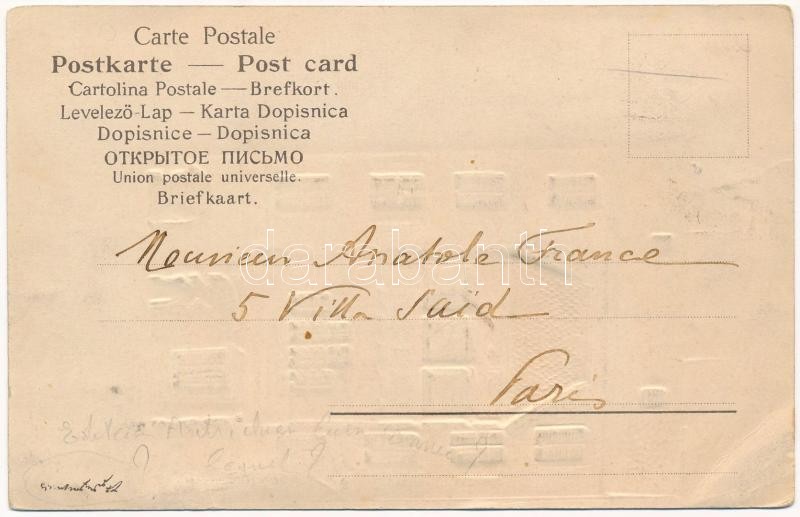 Carte Postale
Postkarte — Post card
Cartolina Postale — Brefkort.
Levelező-Lap — Karta Dopisnica
Dopisnice — Dopisnica
ОТКРЫТОЕ ПИСЬМО
Union postale universelle.
Briefkaart.
Monsieur Anatole France
darabanth
5 Villa Saïd
Paris